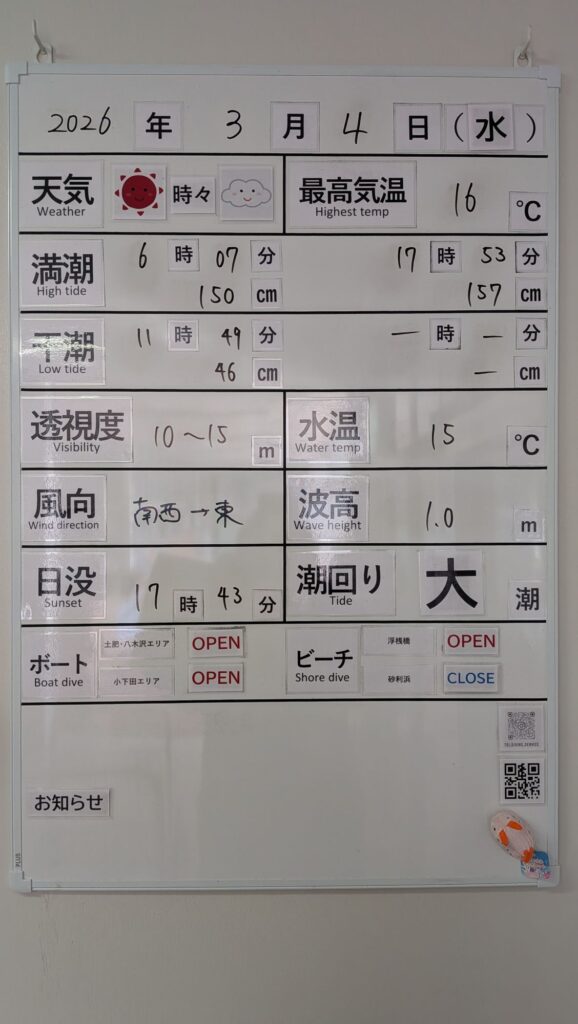 2026 年 3 月 4 日 (水)
天気 時々 最高気温 16 ℃
Weather Highest temp
満潮 6 時 07 分 17 時 53 分
High tide 150 cm 157 cm
干潮 11 時 49 分 ー 時 ー 分
Low tide 46 cm ー cm
透視度 10～15 m 水温 15 ℃
Visibility Water temp
風向 南西→東 波高 1.0 m
Wind direction Wave height
日没 17 時 43 分 潮回り 大 潮
Sunset Tide
ボート 土肥・八木沢エリア OPEN ビーチ 浮桟橋 OPEN
Boat dive 小下田エリア OPEN Shore dive 砂利浜 CLOSE
お知らせ
PLUS